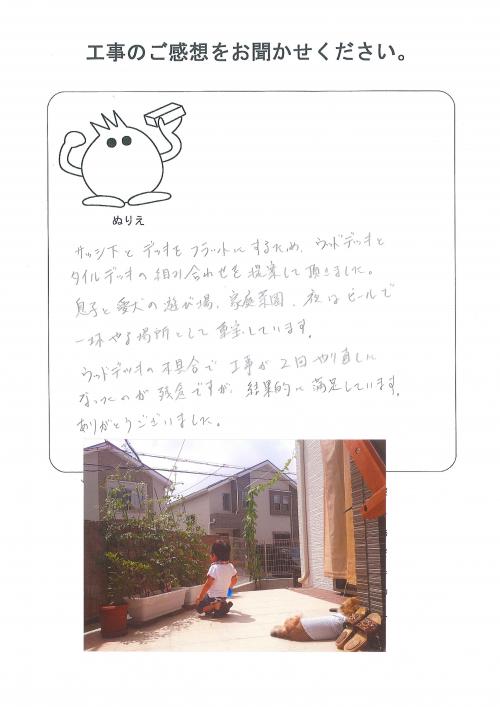 工事のご感想をお聞かせください。
ぬりえ
サッシ下とデッキをフラットにするため、ウッドデッキと
タイルデッキの組み合わせを提案して頂きました。
息子と愛犬の遊び場、家庭菜園、夜はビールで
一杯やる場所として重宝しています。
ウッドデッキの不具合で工事が2回やり直しに
なったのが残念ですが、結果的に満足しています。
ありがとうございました。